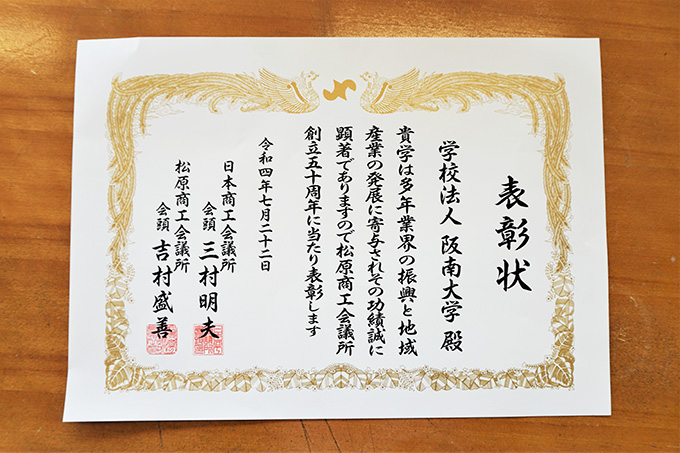 表彰状
学校法人 阪南大学 殿
貴学は多年業界の振興と地域
産業の発展に寄与されその功績誠に
顕著でありますので松原商工会議所
創立五十周年に当たり表彰します
令和四年七月二十二日
日本商工会議所
会頭 三村明夫
松原商工会議所
会頭 吉村盛善